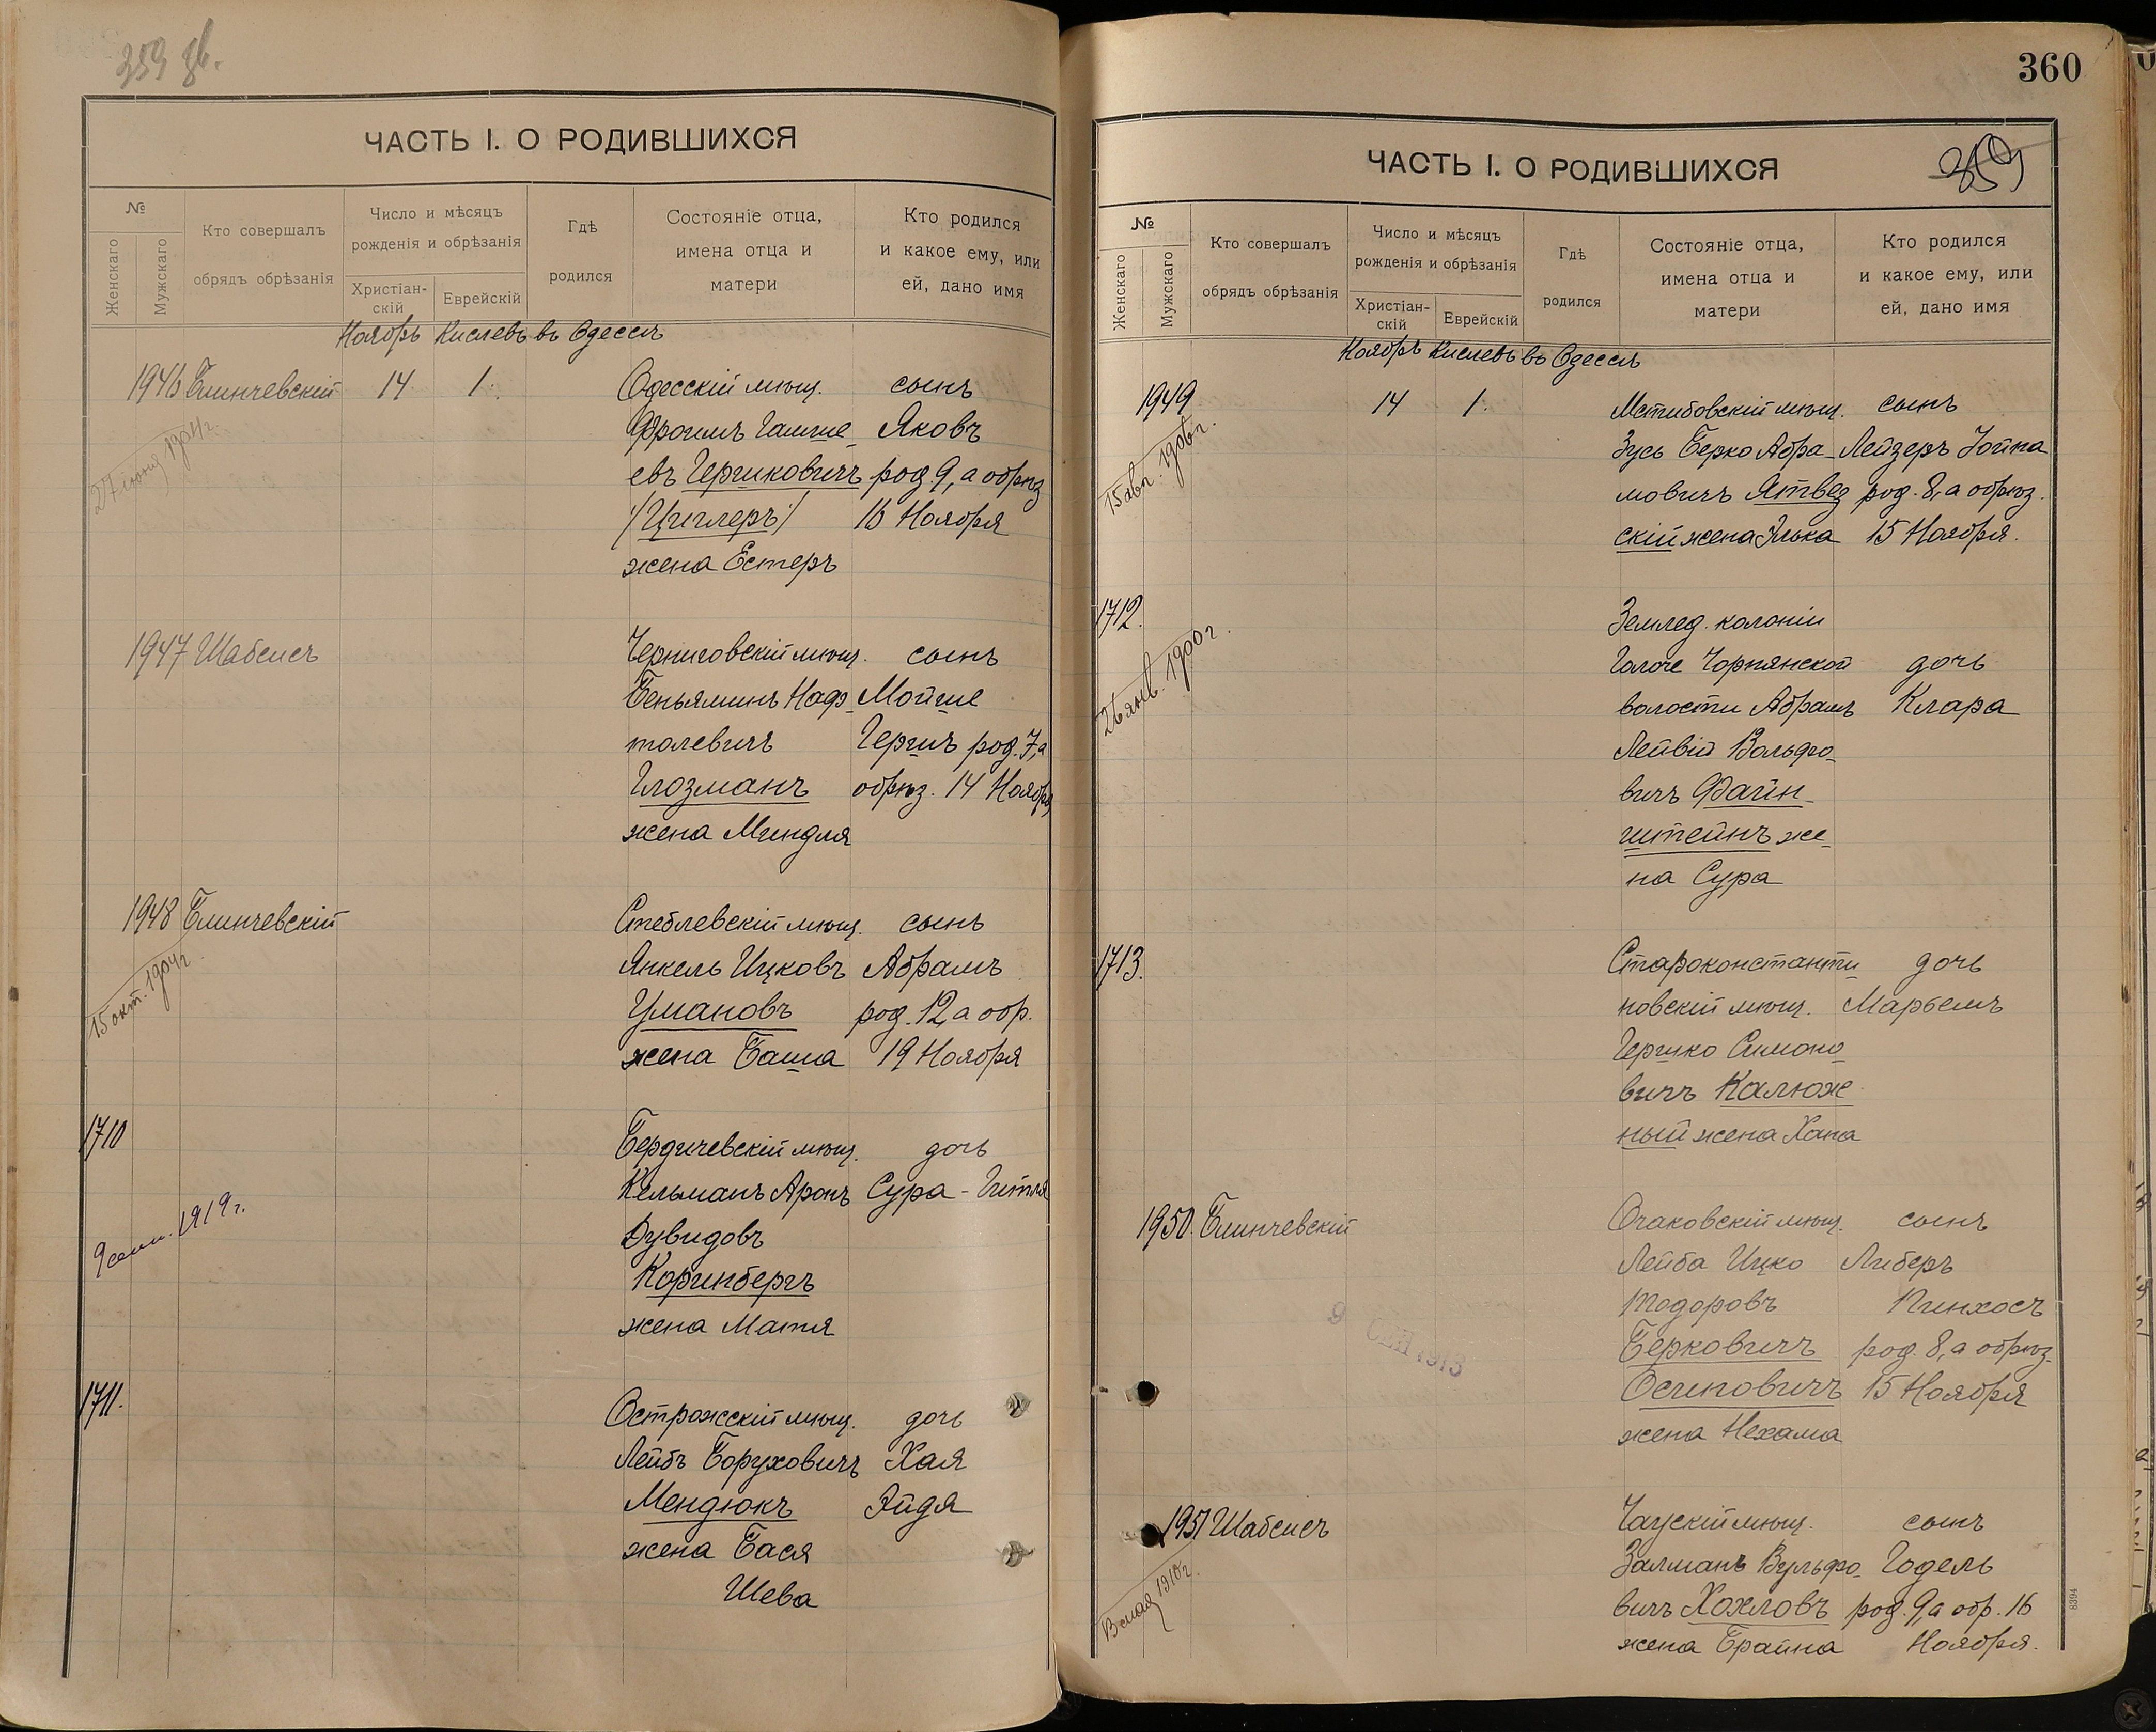 359 зв.
ЧАСТЬ I. О РОДИВШИХСЯ
№
Женскаго
Мужскаго
Кто совершалъ
обрядъ обрѣзанія
Число и мѣсяцъ
рожденія и обрѣзанія
Христіан-
скій
Еврейскій
Гдѣ
родился
Состояніе отца,
имена отца и
матери
Кто родился
и какое ему, или
ей, дано имя
Ноябрь Кислевъ въ Одессѣ
1946 Блинчевскій 14 1. Одесскій мѣщ. сынъ
27 іюня 1904 г.
Фроимъ Гамше- Яковъ
евъ Гершковичъ род. 9, а обрѣз
/Циглеръ/ 16 Ноября
жена Естеръ
1947 Шабсисъ Черниговскій мѣщ. сынъ
Беньяминъ Наф- Мойше
толевичъ Гершъ род. 7, а
Глозманъ обрѣз. 14 Ноября
жена Миндля
1948 Блинчевскій Стеблевскій мѣщ. сынъ
15 окт. 1904 г.
Янкель Ицковъ Абрамъ
Умановъ род. 12, а обр.
жена Баша 19 Ноября
1710 Бердичевскій мѣщ. дочь
9 сент. 1919 г.
Кельманъ Аронъ Сура-Гитля
Дувидовъ
Коринбергъ
жена Матя
1711. Острожскій мѣщ. дочь
Лейбъ Боруховичъ Хая
Мендюкъ Эйдя
жена Бася
Шева
360
ЧАСТЬ I. О РОДИВШИХСЯ
359
№
Женскаго
Мужскаго
Кто совершалъ
обрядъ обрѣзанія
Число и мѣсяцъ
рожденія и обрѣзанія
Христіан-
скій
Еврейскій
Гдѣ
родился
Состояніе отца,
имена отца и
матери
Кто родился
и какое ему, или
ей, дано имя
Ноябрь Кислевъ въ Одессѣ
1949 14 1. Мстибовскій мѣщ. сынъ
15 авг. 1906 г.
Зусь Берко Абра- Лейзеръ Іойна
мовичъ Ятвез род. 8, а обрѣз.
скій жена Элька 15 Ноября.
1712. Землед. колоніи
26 янв. 1900 г.
Галаче Чорнянской дочь
волости Абрамъ Клара
Лейвій Вольфо-
вичъ Файн-
штейнъ же-
на Сура
1713. Староконстанти- дочь
новскій мѣщ. Марьемъ
Гершко Симоно-
вичъ Калюж-
ный жена Хана
1950. Блинчевскій Очаковскій мѣщ. сынъ
Лейба Ицко Либеръ
Тодоровъ Пинхосъ
9 СЕН 1913
Берковичъ род. 8, а обрѣз.
Осиповичъ 15 Ноября
жена Нехама
1951 Шабсисъ Чаускій мѣщ. сынъ
Залманъ Вульфо- Годель
вичъ Хохловъ род. 9, а обр. 16
жена Брайна Ноября.
мая 1910 г.
8394